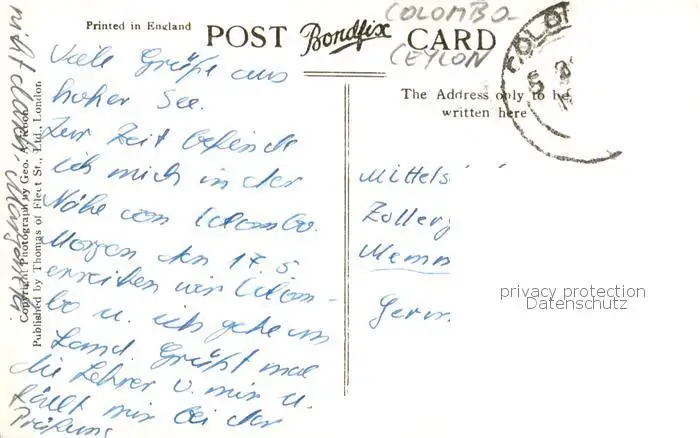 Printed in England
POST Bondfix CARD
COLOMBO-
CEYLON
COLO
The Address only to be
written here
Viele Grüße aus
hoher See.
Zur Zeit befinde
ich mich in der
Nähe von Colombo.
Morgen den 17.5.
erreichen wir Colom-
bo u. ich gehe an
Land. Grüßt mal
die Lehrer v. mir u.
fällt mir bei der
Prüfung
nicht durch.
Copyright Photograph by Geo.
Published by Thomas of Fleet St., Ltd., London
Mittels
Zollerg
Memm
Germ.
privacy protection
Datenschutz